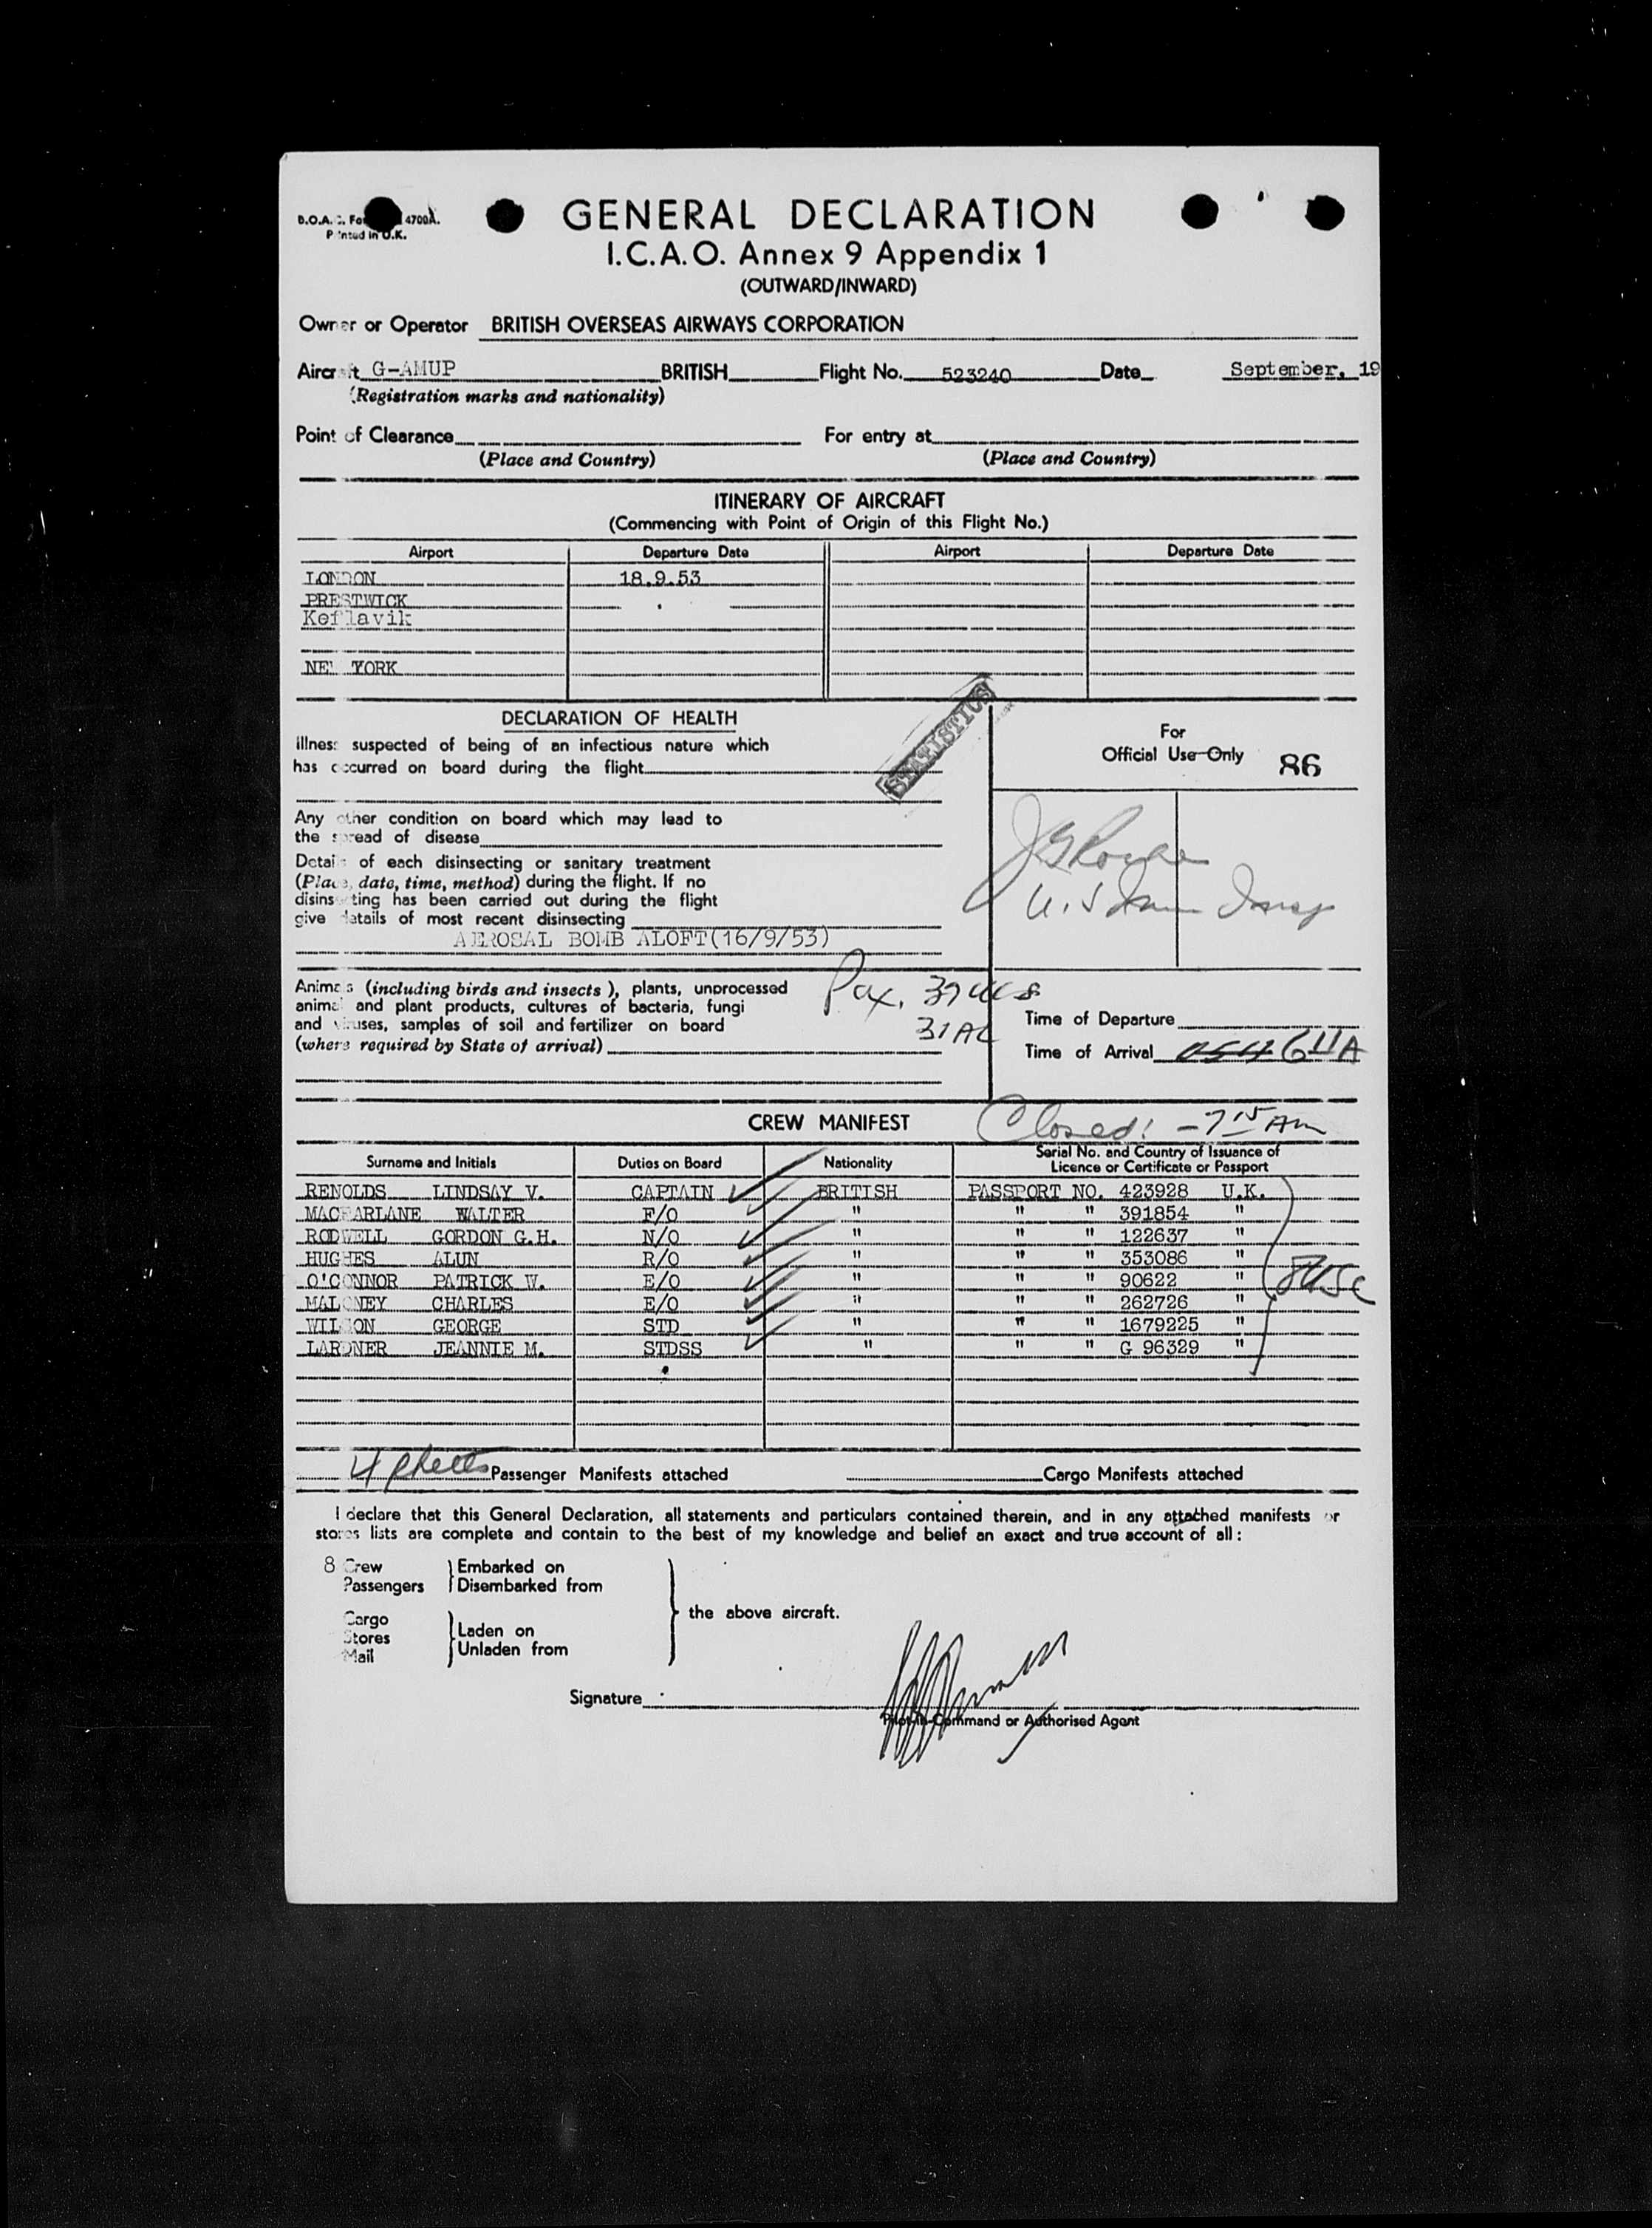 B.O.A.C. Fo 4700A.
Printed in U.K.
GENERAL DECLARATION
I.C.A.O. Annex 9 Appendix 1
(OUTWARD/INWARD)
Owner or Operator BRITISH OVERSEAS AIRWAYS CORPORATION
Aircraft G-AMUP BRITISH Flight No. 523240 Date September, 19
(Registration marks and nationality)
Point of Clearance For entry at
(Place and Country) (Place and Country)
ITINERARY OF AIRCRAFT
(Commencing with Point of Origin of this Flight No.)
Airport Departure Date Airport Departure Date
LONDON 18.9.53
PRESTWICK
Keflavik
NEW YORK
STATISTICS
DECLARATION OF HEALTH
Illness suspected of being of an infectious nature which
has occurred on board during the flight
For
Official Use Only 86
Any other condition on board which may lead to
the spread of disease
Details of each disinsecting or sanitary treatment
(Place, date, time, method) during the flight. If no
disinsecting has been carried out during the flight
give details of most recent disinsecting
AEROSAL BOMB ALOFT(16/9/53)
U.S
Animals (including birds and insects), plants, unprocessed
animal and plant products, cultures of bacteria, fungi
and viruses, samples of soil and fertilizer on board
(where required by State of arrival)
Pax.
Time of Departure
Time of Arrival
CREW MANIFEST
Closed! - 7 15 AM
Surname and Initials Duties on Board Nationality Serial No. and Country of Issuance of
Licence or Certificate or Passport
RENOLDS LINDSAY V. CAPTAIN BRITISH PASSPORT NO. 423928 U.K.
MACFARLANE WALTER F/O " " " 391854 "
RODWELL GORDON G.H. N/O " " " 122637 "
HUGHES ALUN R/O " " " 353086 "
O'CONNOR PATRICK W. E/O " " " 90622 "
MALONEY CHARLES E/O " " " 262726 "
WILSON GEORGE STD " " " 1679225 "
LARDNER JEANNIE M. STDSS " " " G 96329 "
4 sheets Passenger Manifests attached Cargo Manifests attached
I declare that this General Declaration, all statements and particulars contained therein, and in any attached manifests or
stores lists are complete and contain to the best of my knowledge and belief an exact and true account of all:
8 Crew Embarked on
Passengers Disembarked from
the above aircraft.
Cargo
Stores Laden on
Mail Unladen from
Signature
Pilot-in-Command or Authorised Agent